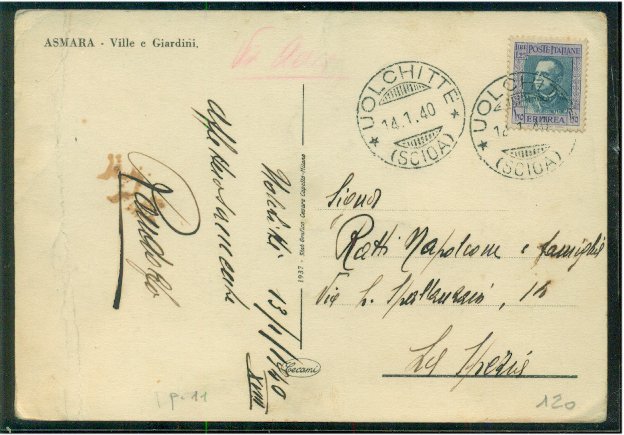 ASMARA - Ville e Giardini,
Via Aerea
POSTE ITALIANE
ERITREA
UOLCHITTE
14.1.40
(SCIOA)
UOLCHITTE
14.1.40
(SCIOA)
Affettuosamente
Uolchitti 13/1/1940
XVIII
1937 - Stab. Grafico Cesare Capello - Milano
Cecami
Signor
Ratti Napoleone e famiglia
Via L. Spallanzani,
La Spezia
p. 11
120